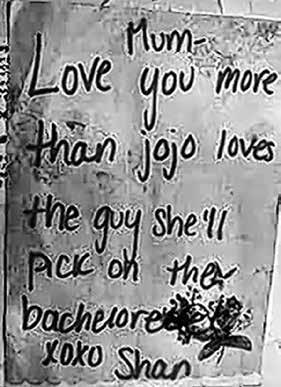 Mum-
Love you more
than jojo loves
the guy she'll
pick on the
bachelore
xoxo Shan